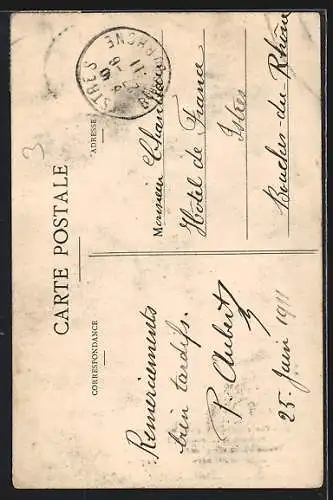 CARTE POSTALE
CORRESPONDANCE
ADRESSE
3
Remerciements
bien tardifs.
P. Aubert
25 Juin 1911
ISTRES
BCHES DU RHONE
11
Monsieur
Hôtel de France
Istres
Bouches-du-Rhône